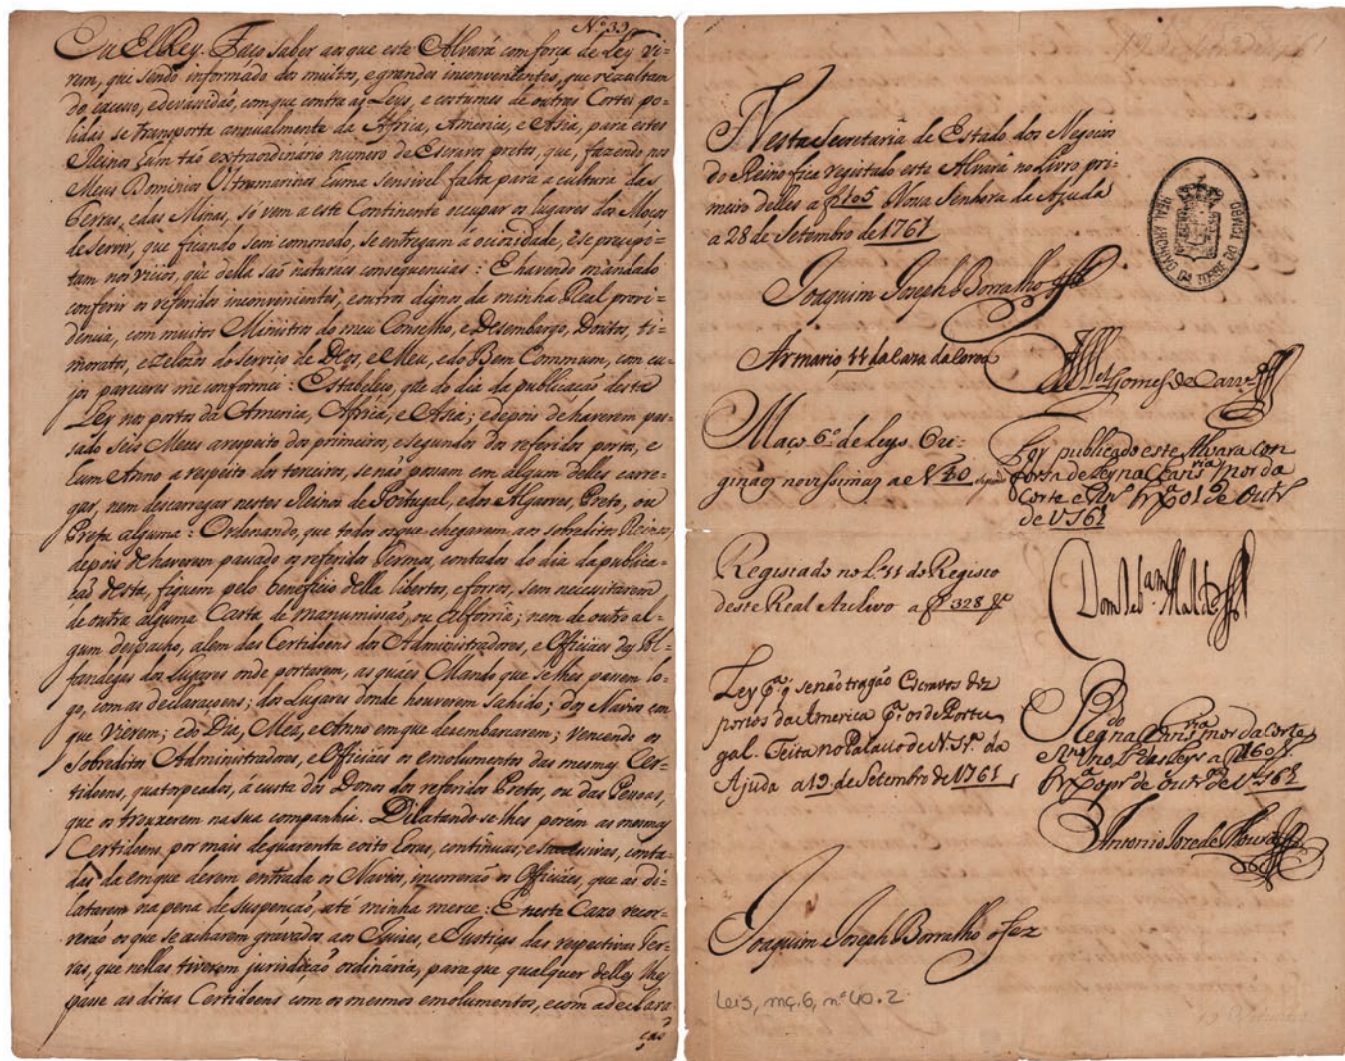 Nº 39
Eu ElRey. Faço saber aos que este Alvará com força de Ley vi=
rem, que sendo informado dos muitos, e grandes inconvenientes, que rezultam
do excesso, e devassidaõ, com que contra as Leys, e costumes de outras Cortes po=
lidas se transporta annualmente da Africa, America, e Asia, para estes
Reinos hum taõ extraordinário numero de Escravos pretos, que, fazendo nos
Meus Dominios Ultramarinos huma sensivel falta para a cultura das
Terras, e das Minas, só vem a este Continente occupar os lugares dos Moços
de servir, que ficando sem commodo, se entregam á ociosidade, e se precipi=
tam nos vicios, que della saõ naturáes consequencias: E havendo mandado
conferir os referidos inconvenientes, e outros dignos da minha Real provi=
dencia, com muitos Ministros do meu Conselho, e Desembargo, Doutos, ti=
moratos, e zelozos do serviço de Deos, e Meu, e do Bem Commum, com cu=
jos pareceres me conformei: Estabeleço, que do dia da publicaçaõ desta
Ley nos portos da America, Africa, e Asia; e depois de haverem pas=
sado seis Mezes a respeito dos primeiros, e segundos dos referidos portos, e
hum Anno a respeito dos terceiros, se naõ possam em algum delles carre=
gar, nem descarregar nestes Reinos de Portugal, e dos Algarves, Preto, ou
Preta alguma: Ordenando, que todos os que chegarem aos sobreditos Reinos,
depois de haverem passado os referidos Termos, contados do dia da publica=
çaõ desta, fiquem pelo beneficio della libertos, e forros, sem necessitarem
de outra alguma Carta de manumissaõ, ou Alforria; nem de outro al=
gum despacho, alem das Certidoens dos Administradores, e Officiáes das Al=
fandegas dos Lugares onde portarem, as quáes Mando que se lhes passem lo=
go, com as declaraçoens; dos Lugares donde houverem sahido; dos Navios em
que vierem; e do Dia, Mez, e Anno em que desembarcarem; vencendo os
sobreditos Administradores, e Officiáes os emolumentos das mesmas Cer=
tidoens, quatropeados, á custa dos Donos dos referidos Pretos, ou das Pessoas,
que os trouxerem na sua companhia. Dilatando-se-lhes porém as mesmas
Certidoens por mais de quarenta e oito horas, continuas, e successivas, conta=
das da em que derem entrada os Navios, incorreráõ os Officiáes, que as di=
latarem na pena de suspençaõ, até minha merce: E neste Cazo recor=
reráõ os que se acharem gravados aos Juizes, e Justiças das respectivas Ter=
ras, que nellas tiverem jurisdiçaõ ordinária, para que qualquer delles lhes
passe as ditas Certidoens com os mesmos emolumentos, e com a declara=
çaõ
Nesta Secretaria de Estado dos Negocios
do Reino fica registado este Alvará no Livro pri=
meiro delles a f 105 Nossa Senhora da Ajuda
a 28 de Setembro de 1761
Joaquim Joseph Borralho
REAL ARCHIVO DA TORRE DO TOMBO
Armario 11 da Caza da Coroa
Gomes de Carv
Maço 6º de Leys Ori-
ginaes novissimas a Nº 40
Foy publicado este Alvara con
forsa de Ley na Chanssria mor da
Corte e Rno Lxa 01 de Outro
de 1761
Registado no Lº 11 do Registo
deste Real Archivo a f 328
Dom Sebam Maldo
Ley pª q se não tragão Escravos dos
portos da America pª os de Portu
gal. Feita no Palacio de N. Srª da
Ajuda a 19 de Setembro de 1761
Regdo na Chanssria mor da Corte
e Rno no Lº das Leys a f 160
Lxª o pro de outro de 1761
Antonio Joze de Moura
Joaquim Joseph Borralho o fez
Leis, mç. 6, nº 40.2